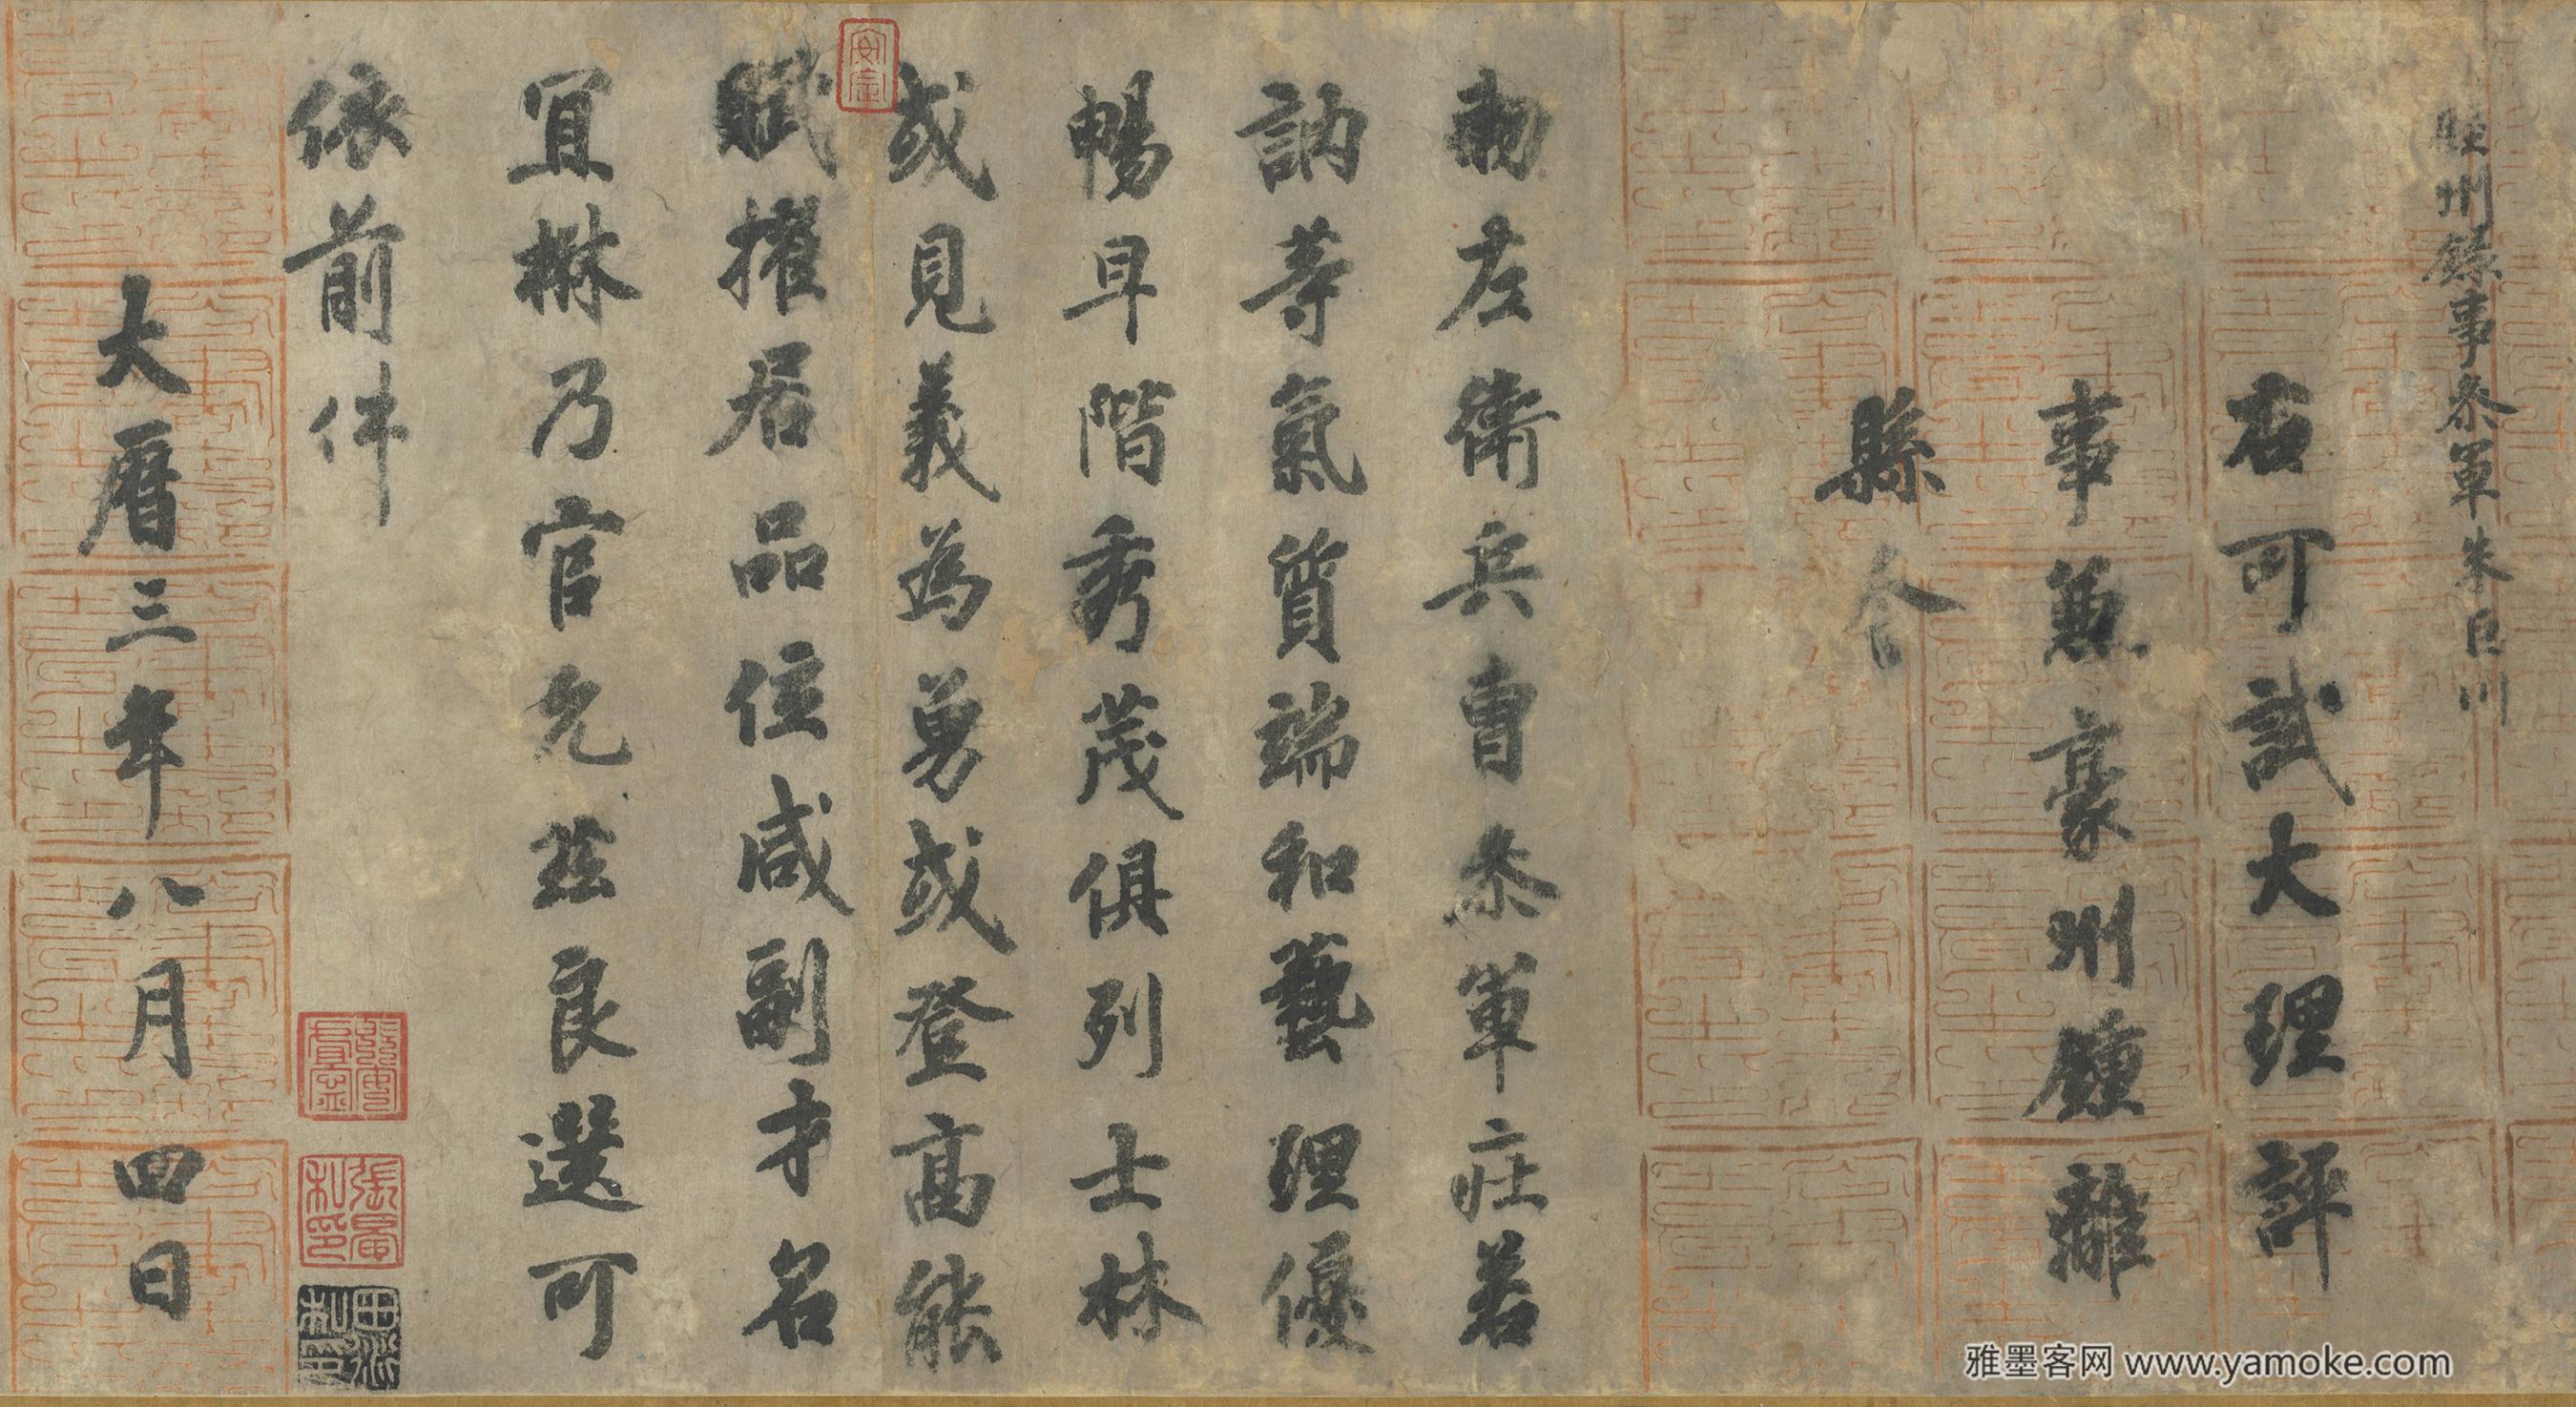 睦州錄事叅軍朱巨川
右可試大理評
事兼豪州鍾離
縣令
勅左衛兵曹叅軍莊若
訥等氣質端和藝理優
暢早階秀茂俱列士林
或見義為勇或登高能
賦擢居品位咸副才名
宜楙乃官允茲良選可
依前件
大曆三年八月四日
雅墨客网 www.yamoke.com